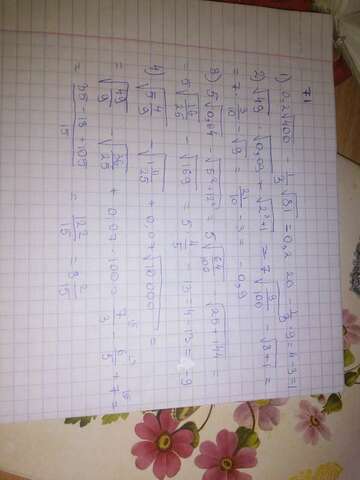 71
1) 0,2√400 - 1/3√81 = 0,2 · 20 - 1/3 · 9 = 4 - 3 = 1
2) √49 · √0,09 - √(2³+1) = 7√(9/100) - √(8+1) =
= 7 · 3/10 - √9 = 21/10 - 3 = -0,9
3) 5√0,64 - √(5²+12²) = 5√(64/100) - √(25+144) =
= 5√(16/25) - √169 = 5 · 4/5 - 13 = 4 - 13 = -9
4) √(5 4/9) - √(1 11/25) + 0,07√10000 =
= √(49/9) - √(36/25) + 0,07 · 100 = 7/3 - 6/5 + 7 =
= (35 - 18 + 105)/15 = 122/15 = 8 2/15